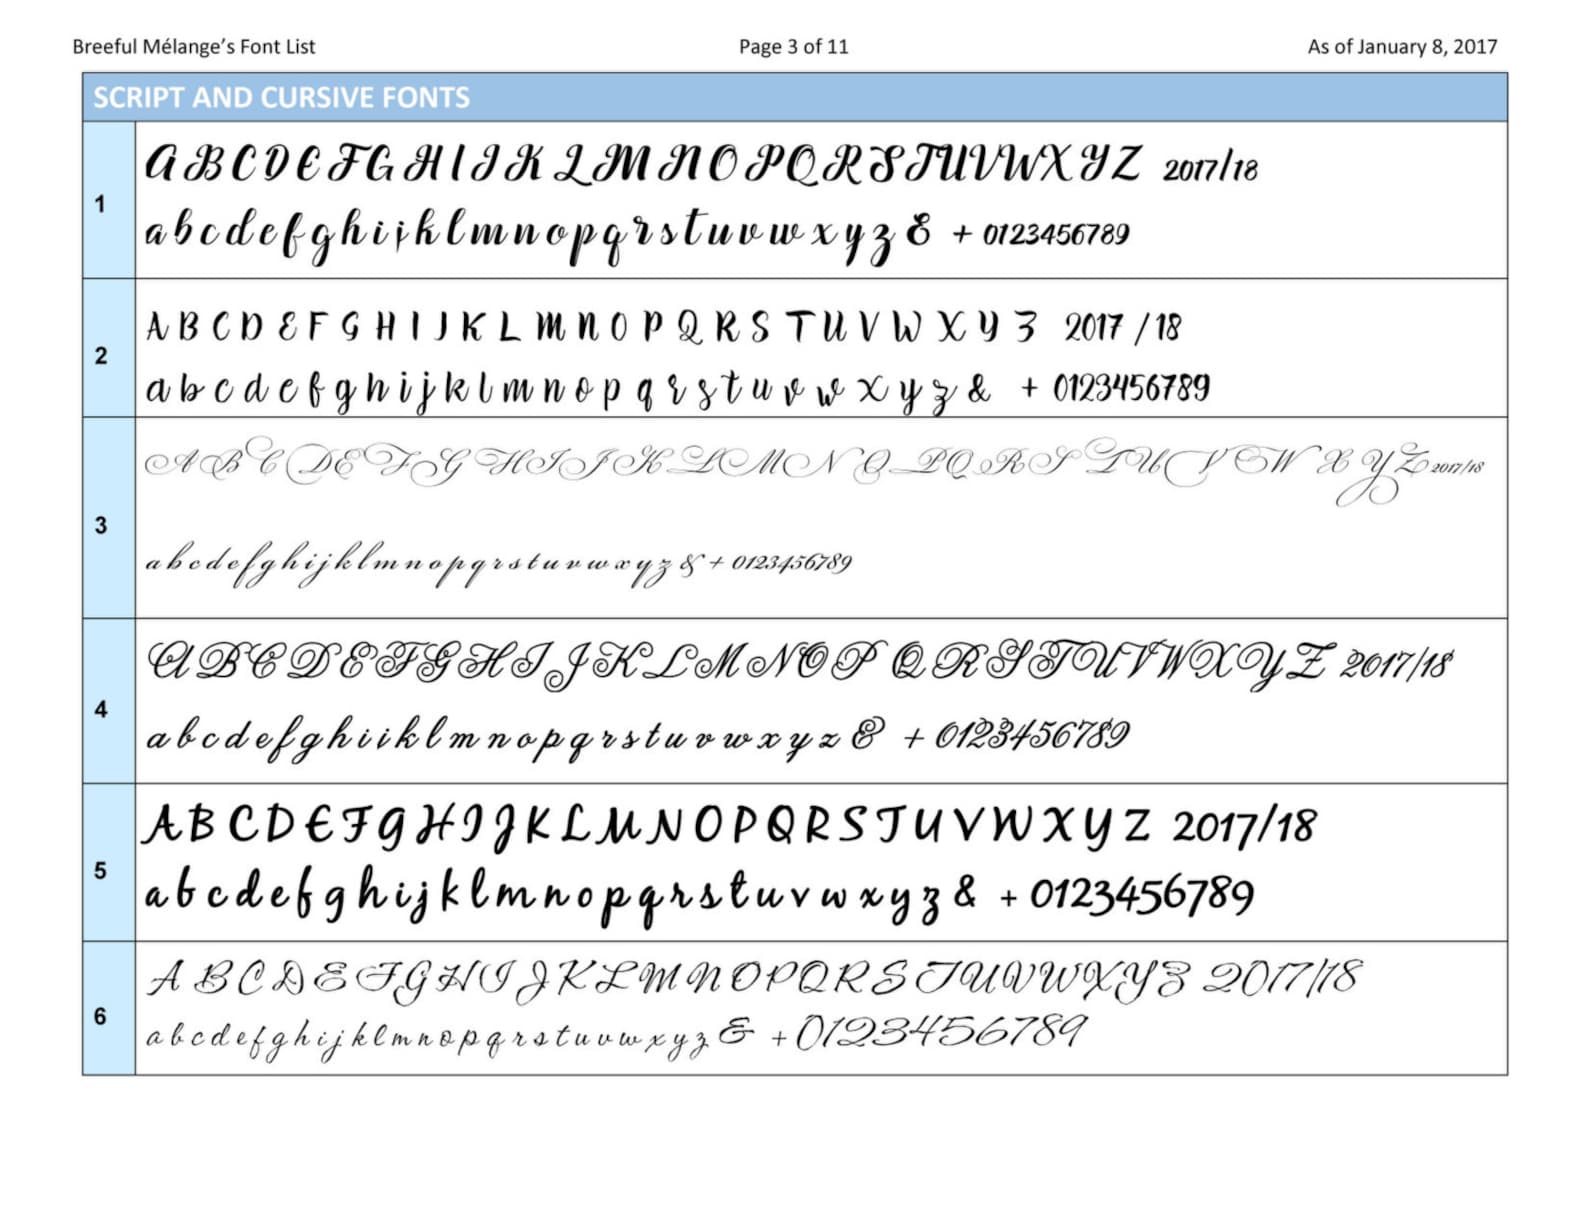 Breeful Mélange's Font List Page 3 of 11 As of January 8, 2017
SCRIPT AND CURSIVE FONTS
1
A B C D E F G H I J K L M N O P Q R S T U V W X Y Z 2017/18
a b c d e f g h i j k l m n o p q r s t u v w x y z & + 0123456789
2
A B C D E F G H I J K L M N O P Q R S T U V W X Y Z 2017 / 18
a b c d e f g h i j k l m n o p q r s t u v w x y z & + 0123456789
3
A B C D E F G H I J K L M N O P Q R S T U V W X Y Z 2017/18
a b c d e f g h i j k l m n o p q r s t u v w x y z & + 0123456789
4
A B C D E F G H I J K L M N O P Q R S T U V W X Y Z 2017/18
a b c d e f g h i i k l m n o p q r s t u v w x y z & + 0123456789
5
A B C D E F G H I J K L M N O P Q R S T U V W X Y Z 2017/18
a b c d e f g h i j k l m n o p q r s t u v w x y z & + 0123456789
6
A B C D E F G H I J K L M N O P Q R S T U V W X Y Z 2017/18
a b c d e f g h i j k l m n o p q r s t u v w x y z & + 0123456789